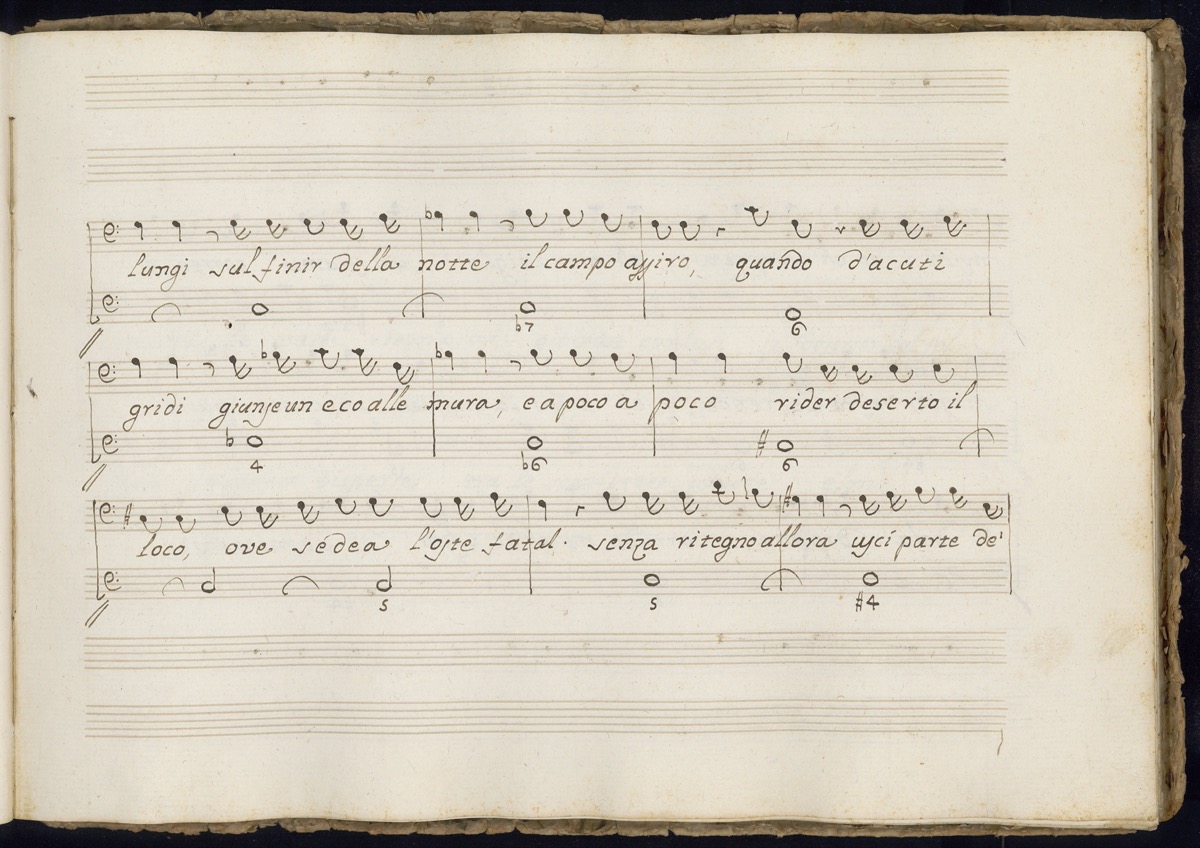 lungi sul finir della notte il campo assiro, quando d'acuti
♭7 6
gridi giunse un eco alle mura, e a poco a poco rider deserto il
4 ♭6 6
loco, ove sedea l'oste fatal. senza ritegno allora usci parte de'
5 5 #4